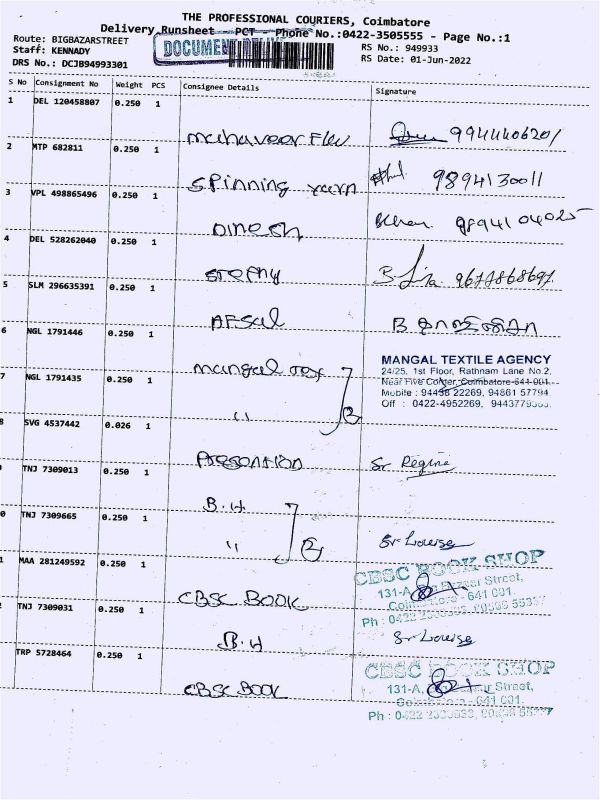 THE PROFESSIONAL COURIERS, Coimbatore
Delivery Runsheet - PCT - Phone No.:0422-3505555 - Page No.:1
Route: BIGBAZARSTREET
RS No.: 949933
Staff: KENNADY
RS Date: 01-Jun-2022
DRS No.: DCJB94993301
S No Consignment No Weight PCS Consignee Details Signature
1 DEL 120458807 0.250 1
2 MTP 682811 0.250 1
Spinning yarn 9894130011
3 VPL 498865496 0.250 1
Dinesh 9894104025
4 DEL 528262040 0.250 1
Stephy 9677868697
5 SLM 296635391 0.250 1
Afsal B
6 NGL 1791446 0.250 1
mangal Tex
MANGAL TEXTILE AGENCY
24/25, 1st Floor, Rathnam Lane No.2,
Near Five Corner, Coimbatore-641 001.
Mobile : 94438 22269, 94861 57794
Off : 0422-4952269,
7 NGL 1791435 0.250 1
"
8 SVG 4537442 0.026 1
Sr Regina
TNJ 7309013 0.250 1
B.H
0 TNJ 7309665 0.250 1
" Sr Louise
1 MAA 281249592 0.250 1
CBSC BOOK
CBSC BOOK SHOP
131-A, Street,
Coimbatore - 641 001.
Ph : 0422
TNJ 7309031 0.250 1
B.H Sr Louise
TRP 5728464 0.250 1
CBSC BOOK
CBSC BOOK SHOP
131-A, Street,
Coimbatore - 641 001.
Ph : 0422